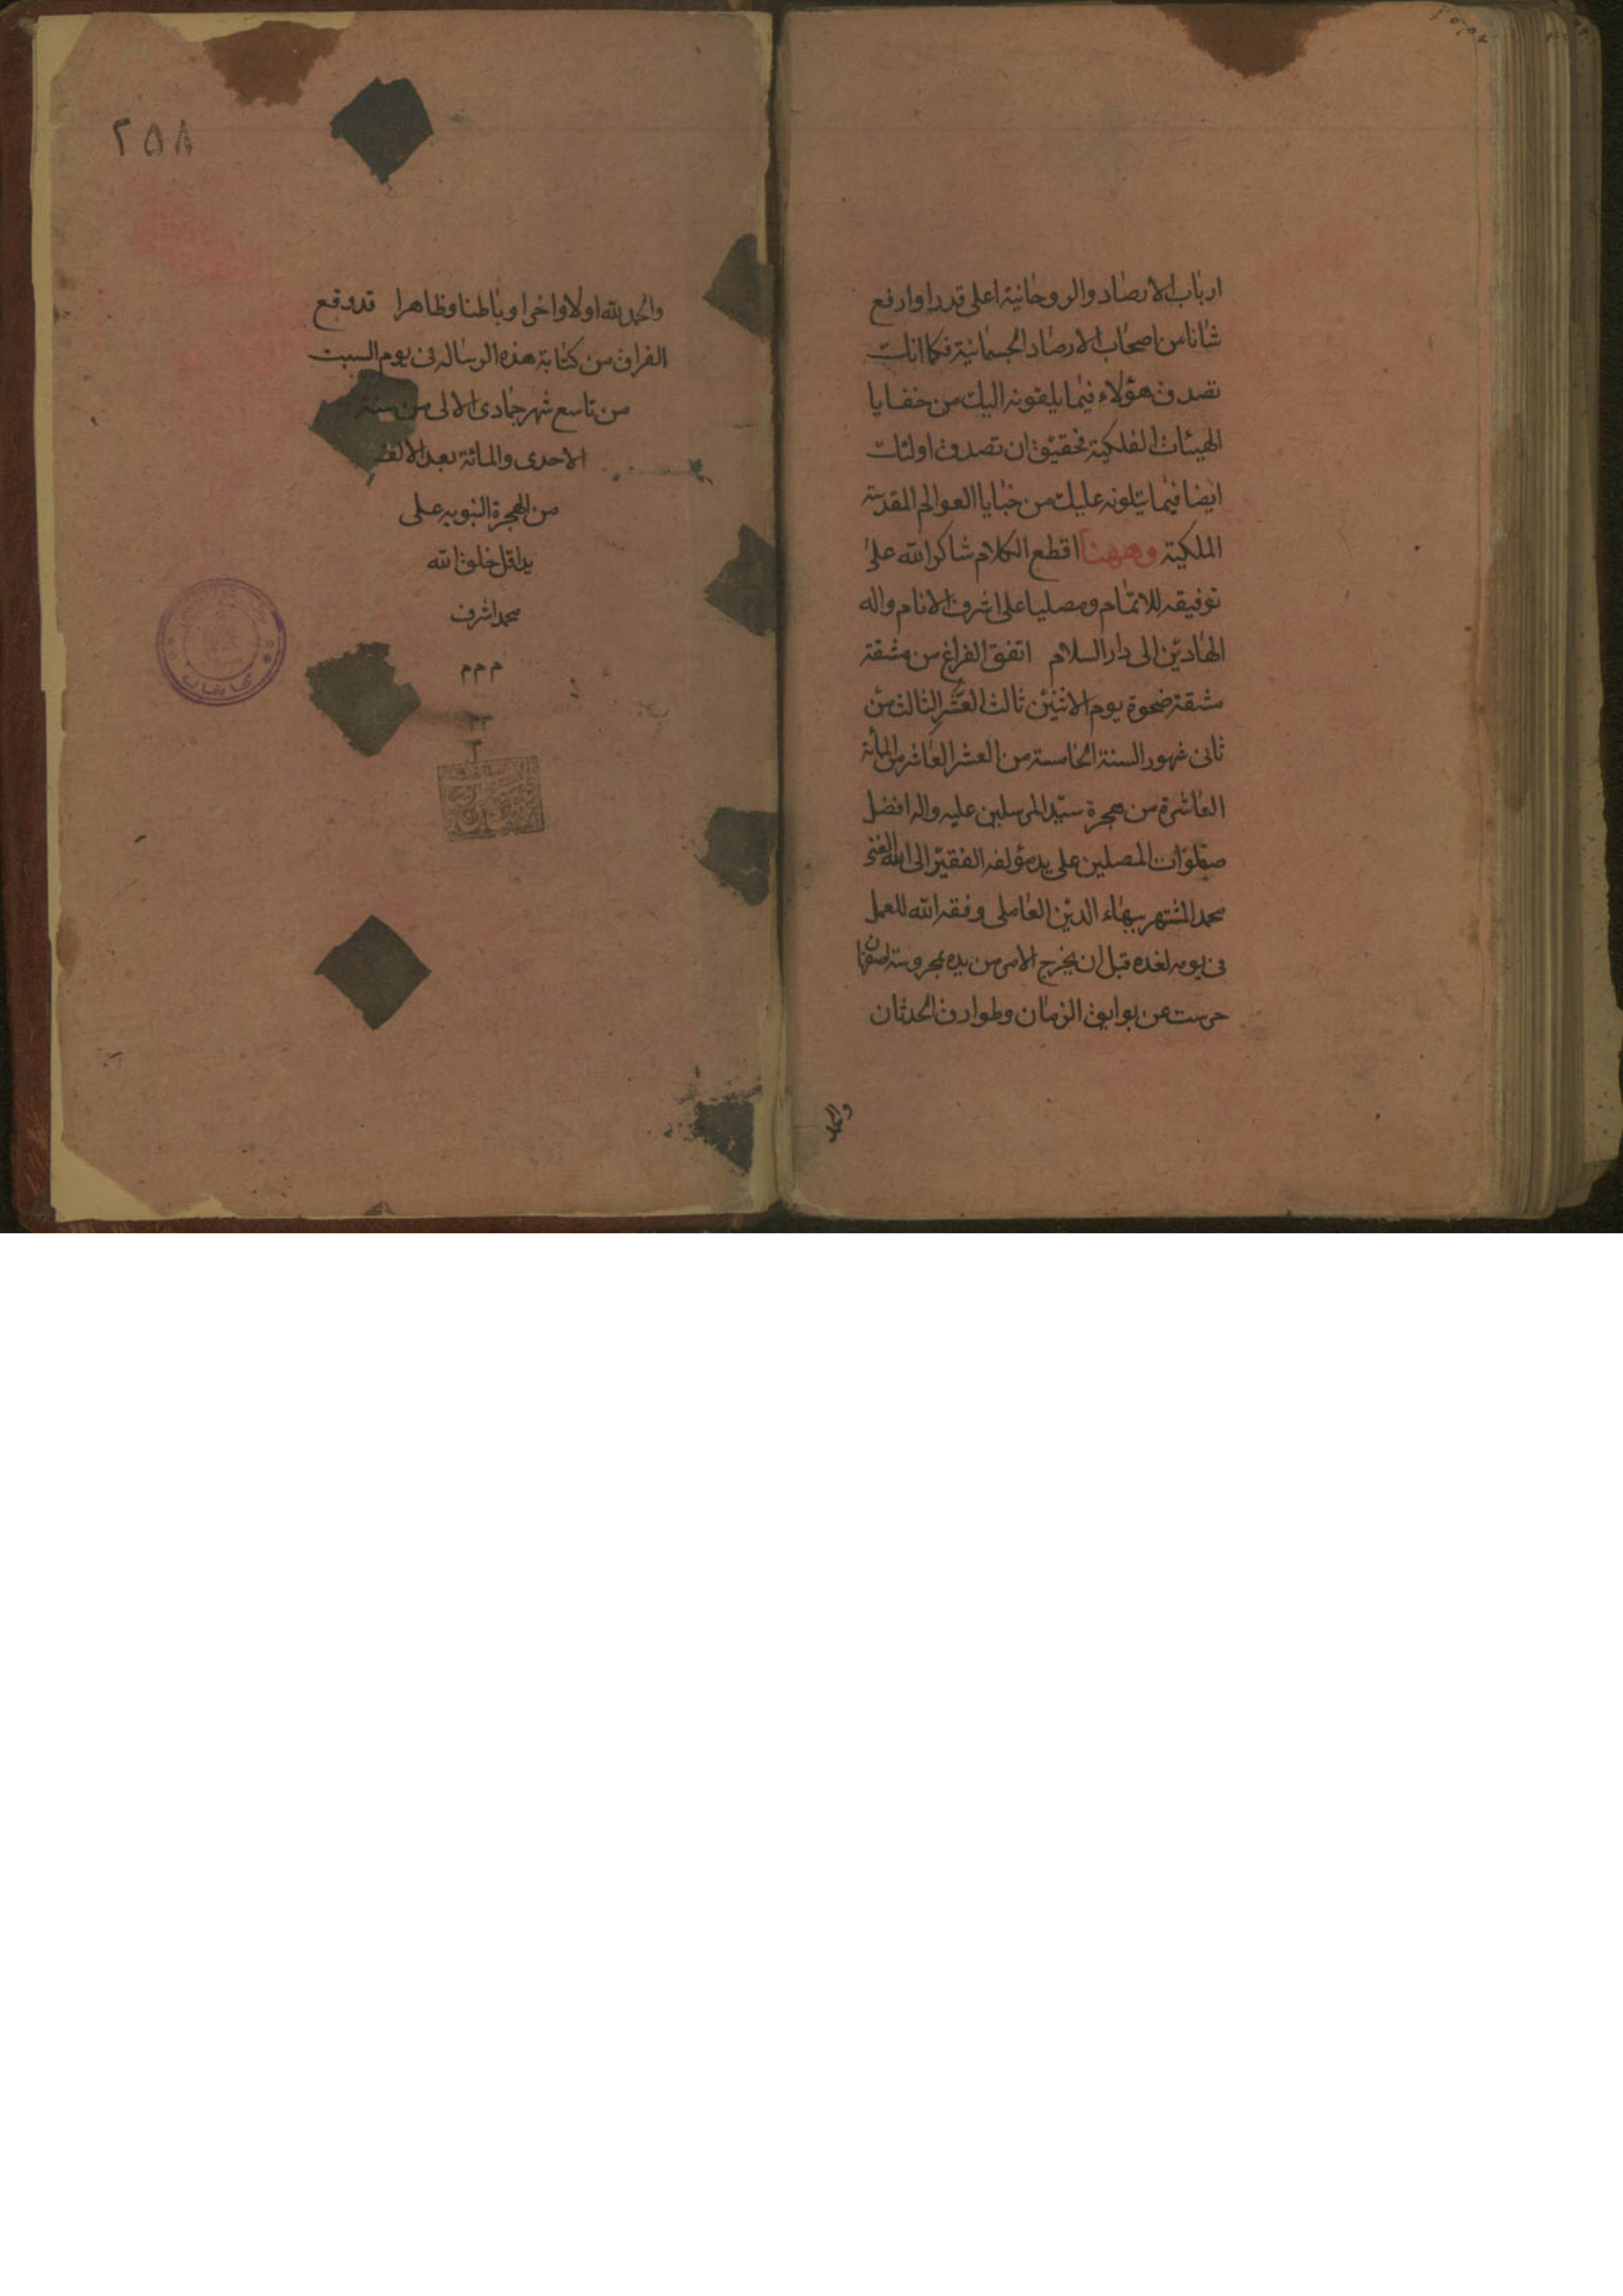 ارباب الارصاد والروحانية اعلى قدرا وارفع
شانا من اصحاب الارصاد الجسمانية فكما انك
تصدق هؤلاء فيما يلقونه اليك من خفايا
الهيئات الفلكية فحقيق ان تصدق اولئك
ايضا فيما يتلونه عليك من خبايا العوالم المقدسة
الملكية وههنا اقطع الكلام شاكرا لله على
توفيقه للاتمام ومصليا على اشرف الانام واله
الهادين الى دار السلام اتفق الفراغ من مشقة
مشقة ضحوة يوم الاثنين ثالث العشر الثالث من
ثانى شهور السنة الخامسة من العشر العاشر من المأئة
العاشرة من هجرة سيد المرسلين عليه واله افضل
صلوات المصلين على يد مؤلفه الفقير الى الله الغنى
محمد المشتهر ببهاء الدين العاملى وفقه الله للعمل
فى يومه لغده قبل ان يخرج الامر من يده بمحروسة اصفهان
حرست عن بوايق الزمان وطوارق الحدثان
والحمد
٢٥٨
والحمد لله اولا واخرا وباطنا وظاهرا قد وقع
الفراق من كتابة هذه الرساله فى يوم السبت
من تاسع شهر جمادى الالى من سنة
الاحدى والمائة بعد الالف
من الهجرة النبويه على
يد اقل خلق الله
محمد اشرف
م م م
م م
م